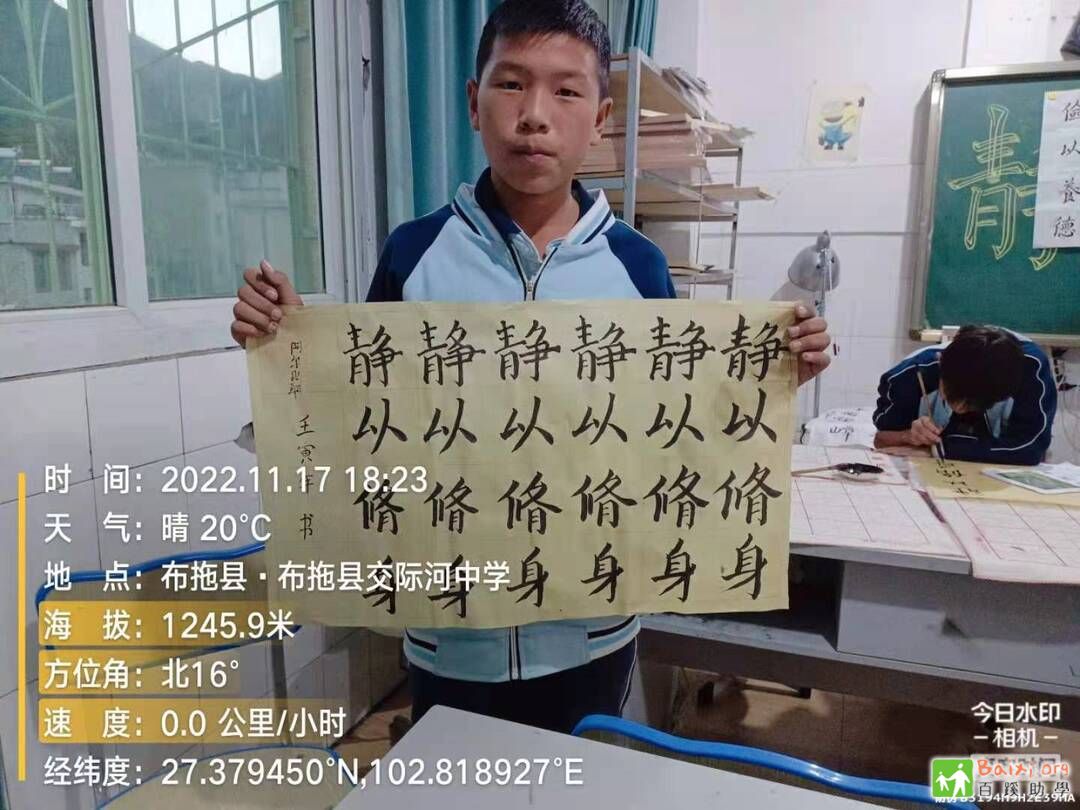 静以脩身
静以脩身
静以脩身
静以脩身
静以脩身
静以脩身
壬寅年 书
儉以養德
时 间：2022.11.17 18:23
天 气：晴 20°C
地 点：布拖县·布拖县交际河中学
海 拔：1245.9米
方位角：北16°
速 度：0.0 公里/小时
经纬度：27.379450°N,102.818927°E
今日水印
-相机-
Baixi.org
百蹊助學